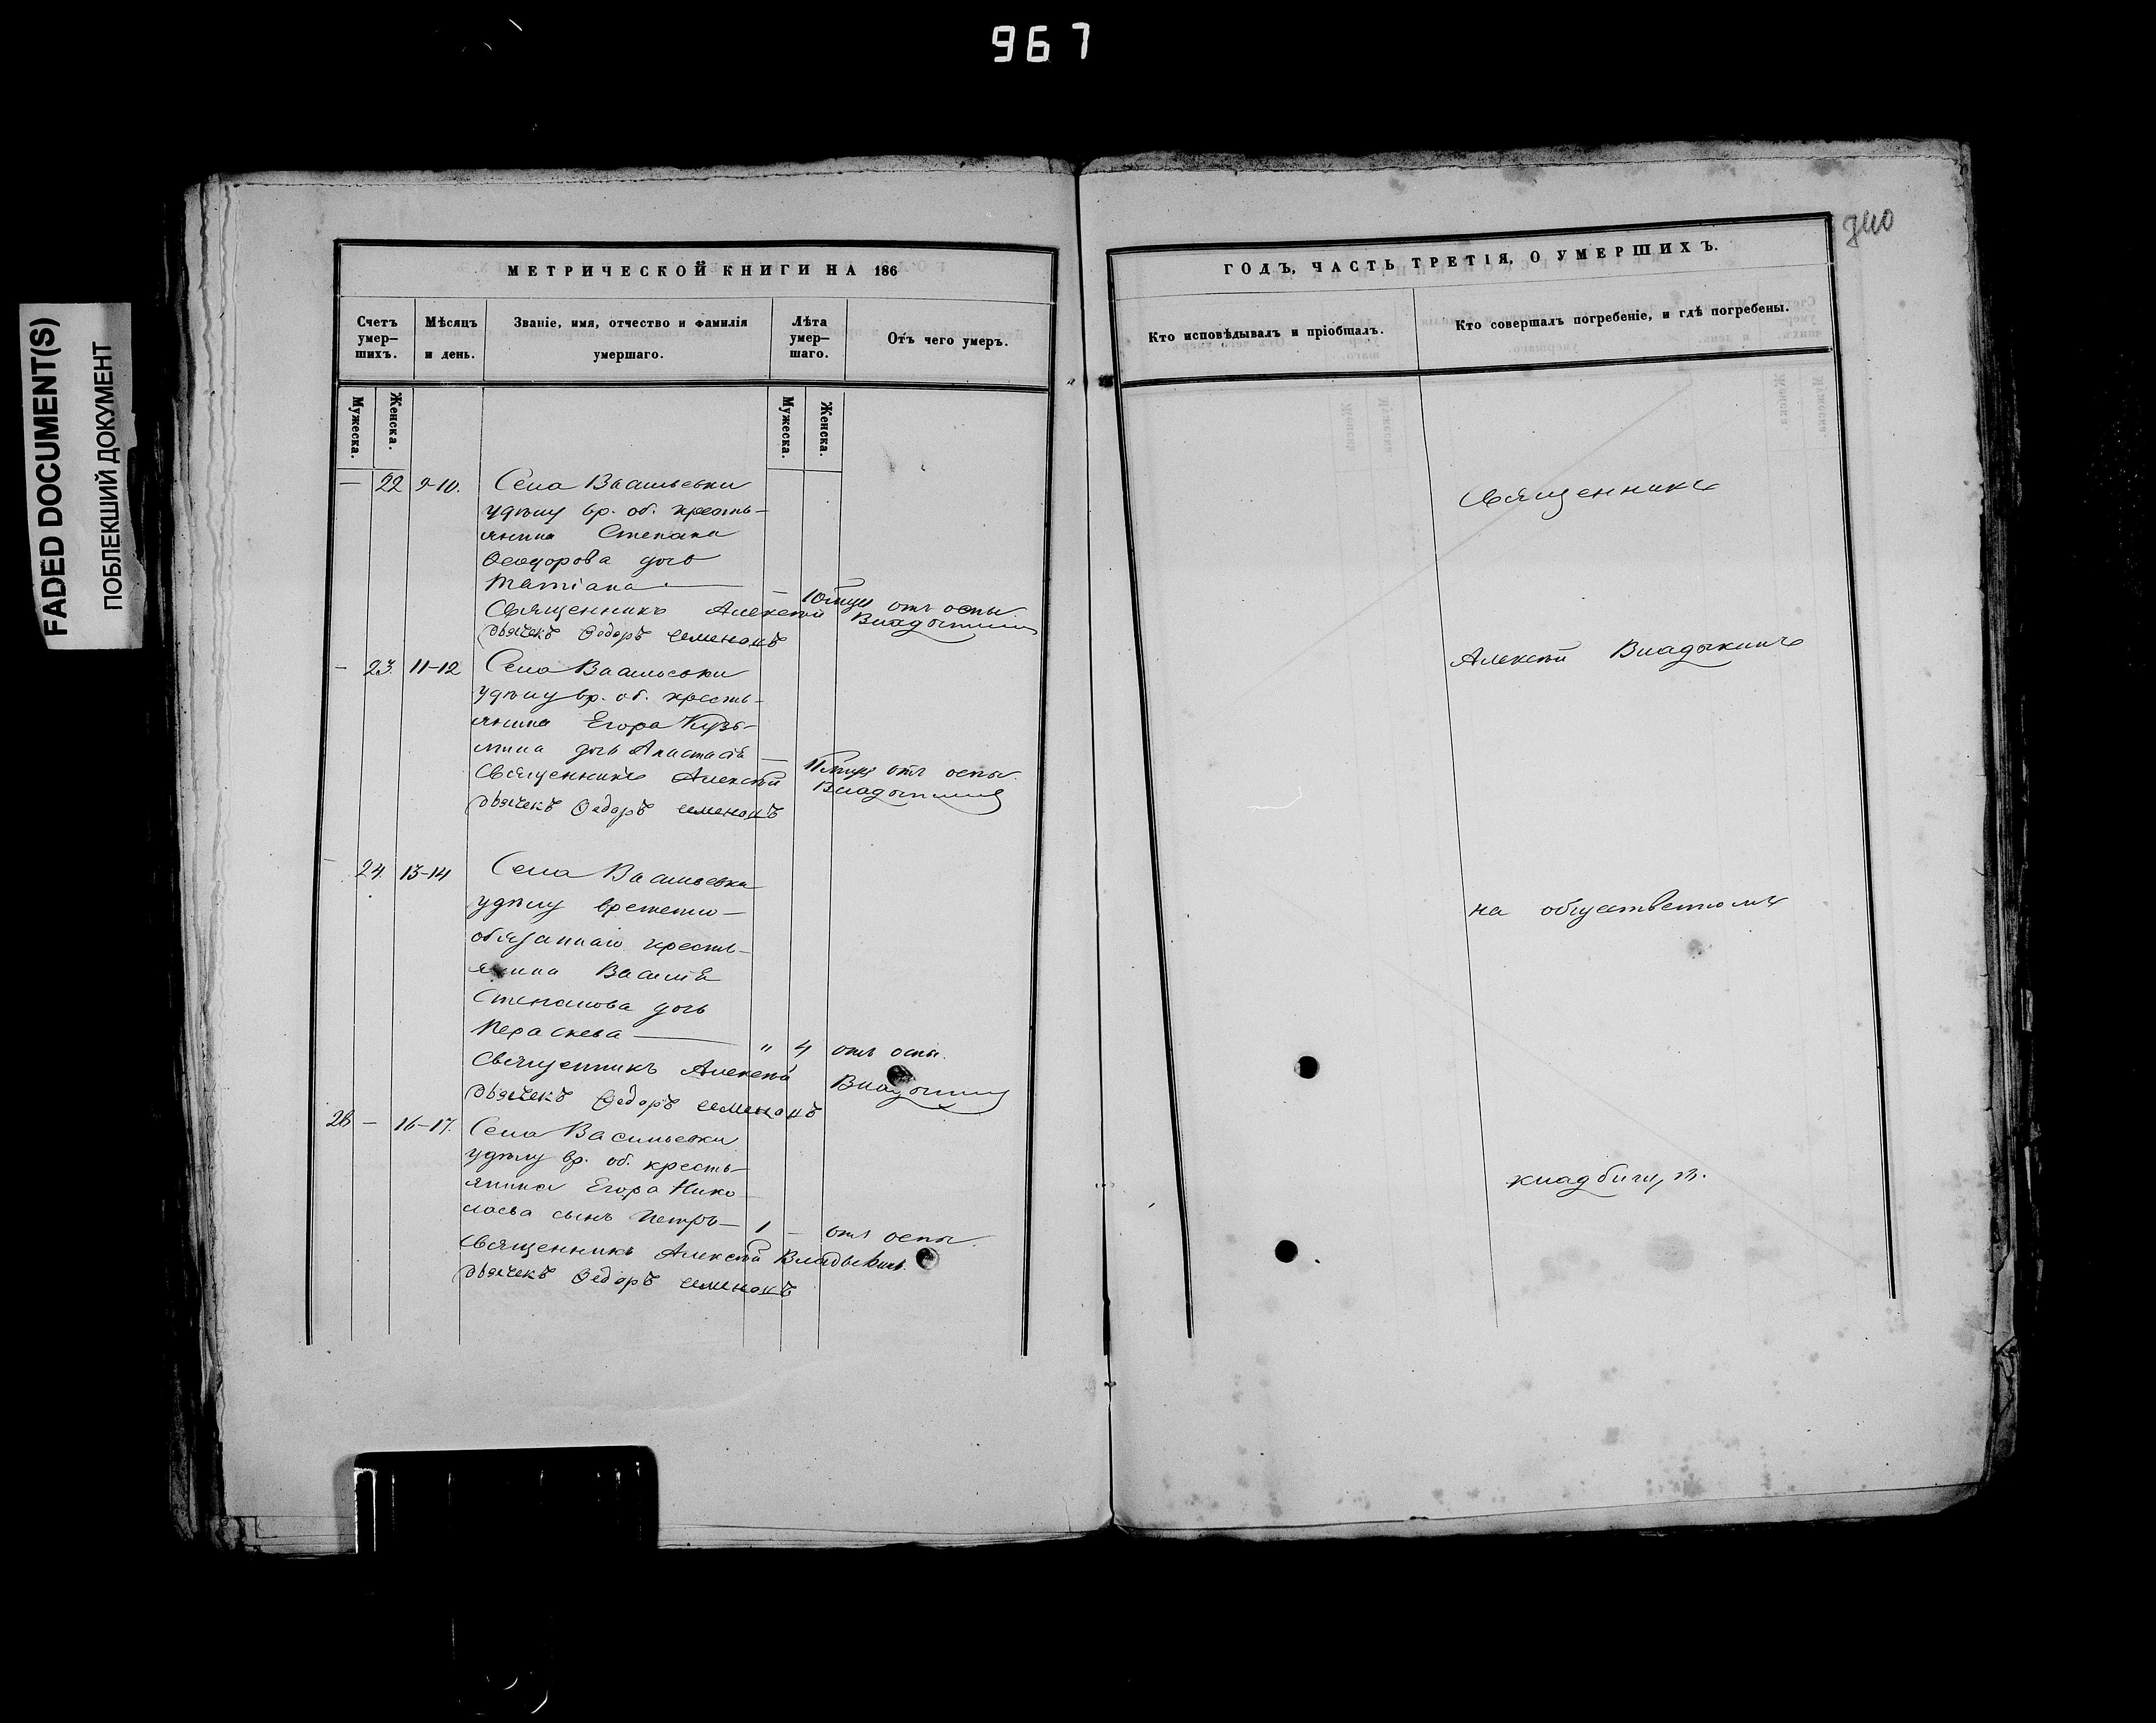 967
FADED DOCUMENT(S)
ПОБЛЕКШИЙ ДОКУМЕНТ
МЕТРИЧЕСКОЙ КНИГИ НА 186
Счетъ умер-шихъ.
Мѣсяцъ и день.
Званіе, имя, отчество и фамилія умершаго.
Лѣта умер-шаго.
Отъ чего умеръ.
Мужеска.
Женска.
Мужеска.
Женска.
— 22 9-10. Села Васильевки
удѣлу вр. об. кресть-
янина Степана
Ѳеодорова дочь
Татіана — — 10 отъ оспы
Священникъ Алексѣй Владыкинъ
Дьячекъ Ѳедоръ Семеновъ
— 23. 11-12 Села Васильевки
удѣлу вр. об. кресть-
янина Егора Кузь-
мина дочь Анастасія — 11 отъ оспы.
Священникъ Алексѣй Владыкинъ
Дьячекъ Ѳедоръ Семеновъ
— 24. 13-14 Села Васильевки
удѣлу временно-
обязаннаго кресть-
янина Василія
Степанова дочь
Параскева — " 4 отъ оспы.
Священникъ Алексѣй Владыкинъ
Дьячекъ Ѳедоръ Семеновъ
26 — 16-17. Села Васильевки
удѣлу вр. об. кресть-
янина Егора Нико-
лаева сынъ Петръ — 1 — отъ оспы.
Священникъ Алексѣй Владыкинъ.
Дьячекъ Ѳедоръ Семеновъ
340
ГОДЪ, ЧАСТЬ ТРЕТІЯ, О УМЕРШИХЪ.
Кто исповѣдывалъ и пріобщалъ.
Кто совершалъ погребеніе, и гдѣ погребены.
Священникъ
Алексѣй Владыкинъ
на общественномъ
кладбищѣ.